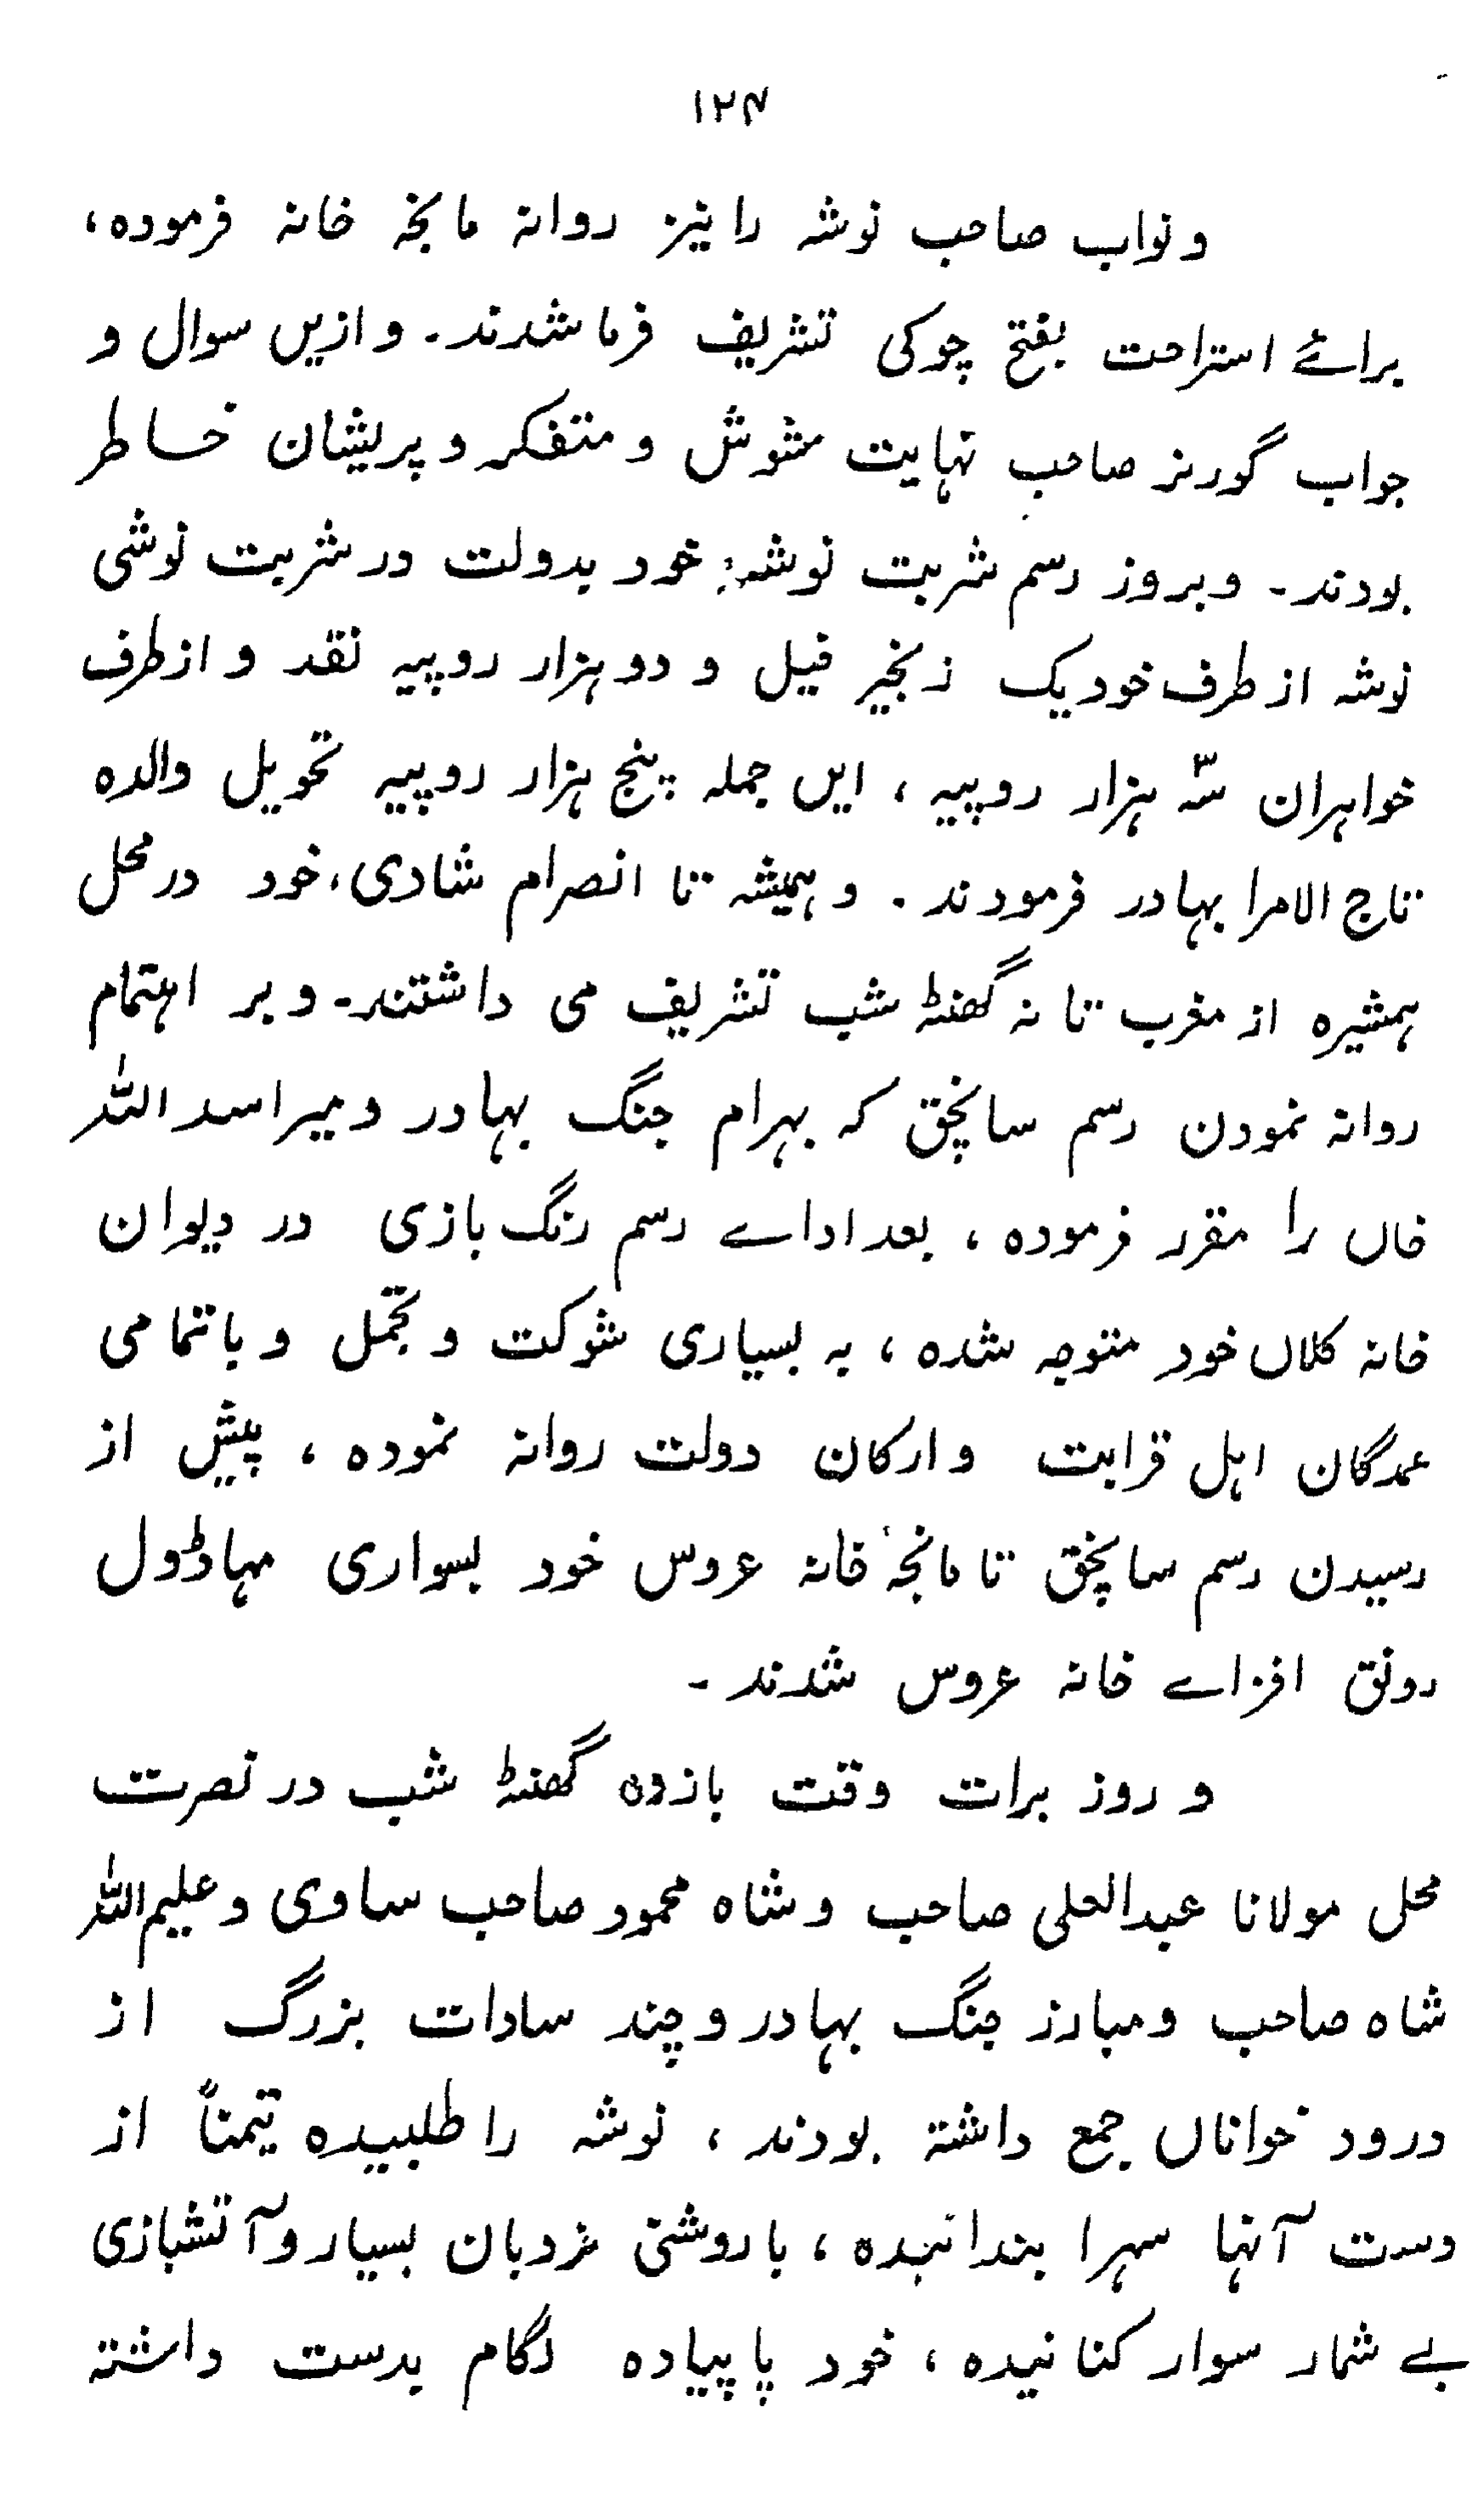 ۱۲۴
و نواب صاحب نوشہ را نیز روانہ مانجہ خانہ فرمودہ،
براۓ استراحت بفتح چوکی تشریف فرما شدند۔ و ازیں سوال و
جواب گورنر صاحب نہایت مشوش و متفکر و پریشان خاطر
بودند۔ و بروز رسم شربت نوشہ خود بدولت در شربت نوشی
نوشہ از طرف خود یک زنجیر فیل و دو ہزار روپیہ نقد و از طرف
خواہران سہ ہزار روپیہ، ایں جملہ پنج ہزار روپیہ تحویل والدہ
تاج الامرا بہادر فرمودند۔ و ہمیشہ تا انصرام شادی، خود در محل
ہمشیرہ از مغرب تا نہ گھنٹہ شب تشریف می داشتند۔ و بر اہتمام
روانہ نمودن رسم سانچق کہ بہرام جنگ بہادر و میر اسد اللہ
خاں را مقرر فرمودہ، بعد اداے رسم رنگ بازی در دیوان
خانہ کلاں خود متوجہ شدہ، بہ بسیاری شوکت و تجمل و با تمامی
عمدگان اہل قرابت و ارکان دولت روانہ نمودہ، پیش از
رسیدن رسم سانچق تا مانجہ خانہ عروس خود بسواری مہاڈول
رونق افزاے خانہ عروس شدند۔
و روز برات وقت یازدہ گھنٹہ شب در نصرت
محل مولانا عبدالعلی صاحب و شاہ محمود صاحب ساوی و علیم اللہ
شاہ صاحب و مبارز جنگ بہادر و چند سادات بزرگ از
درود خواناں جمع داشتہ بودند، نوشہ را طلبیدہ تیمناً از
دست آنہا سہرا بندانیدہ، با روشنی نردبان بسیار و آتشبازی
بے شمار سوار کنانیدہ، خود پا پیادہ لگام بدست داشتہ